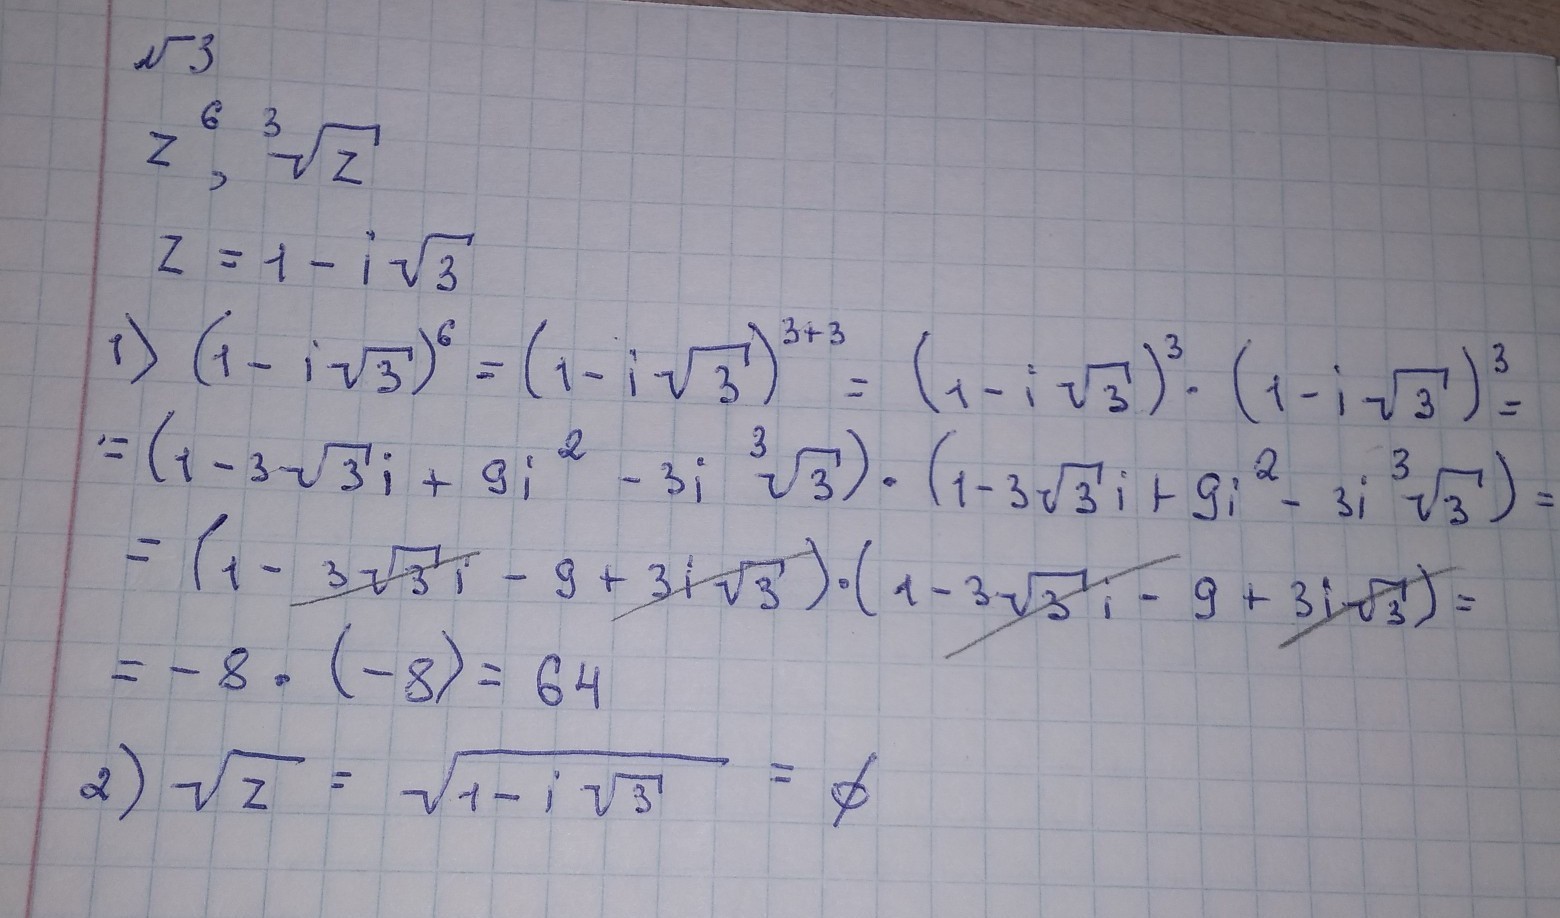 №3
z⁶, ³√z
z = 1 - i√3
1) (1 - i√3)⁶ = (1 - i√3)³⁺³ = (1 - i√3)³ · (1 - i√3)³ =
= (1 - 3√3i + 9i² - 3i ³√3) · (1 - 3√3i + 9i² - 3i ³√3) =
= (1 - 3√3i - 9 + 3i√3) · (1 - 3√3i - 9 + 3i√3) =
= -8 · (-8) = 64
2) √z = √(1 - i√3) = ∅